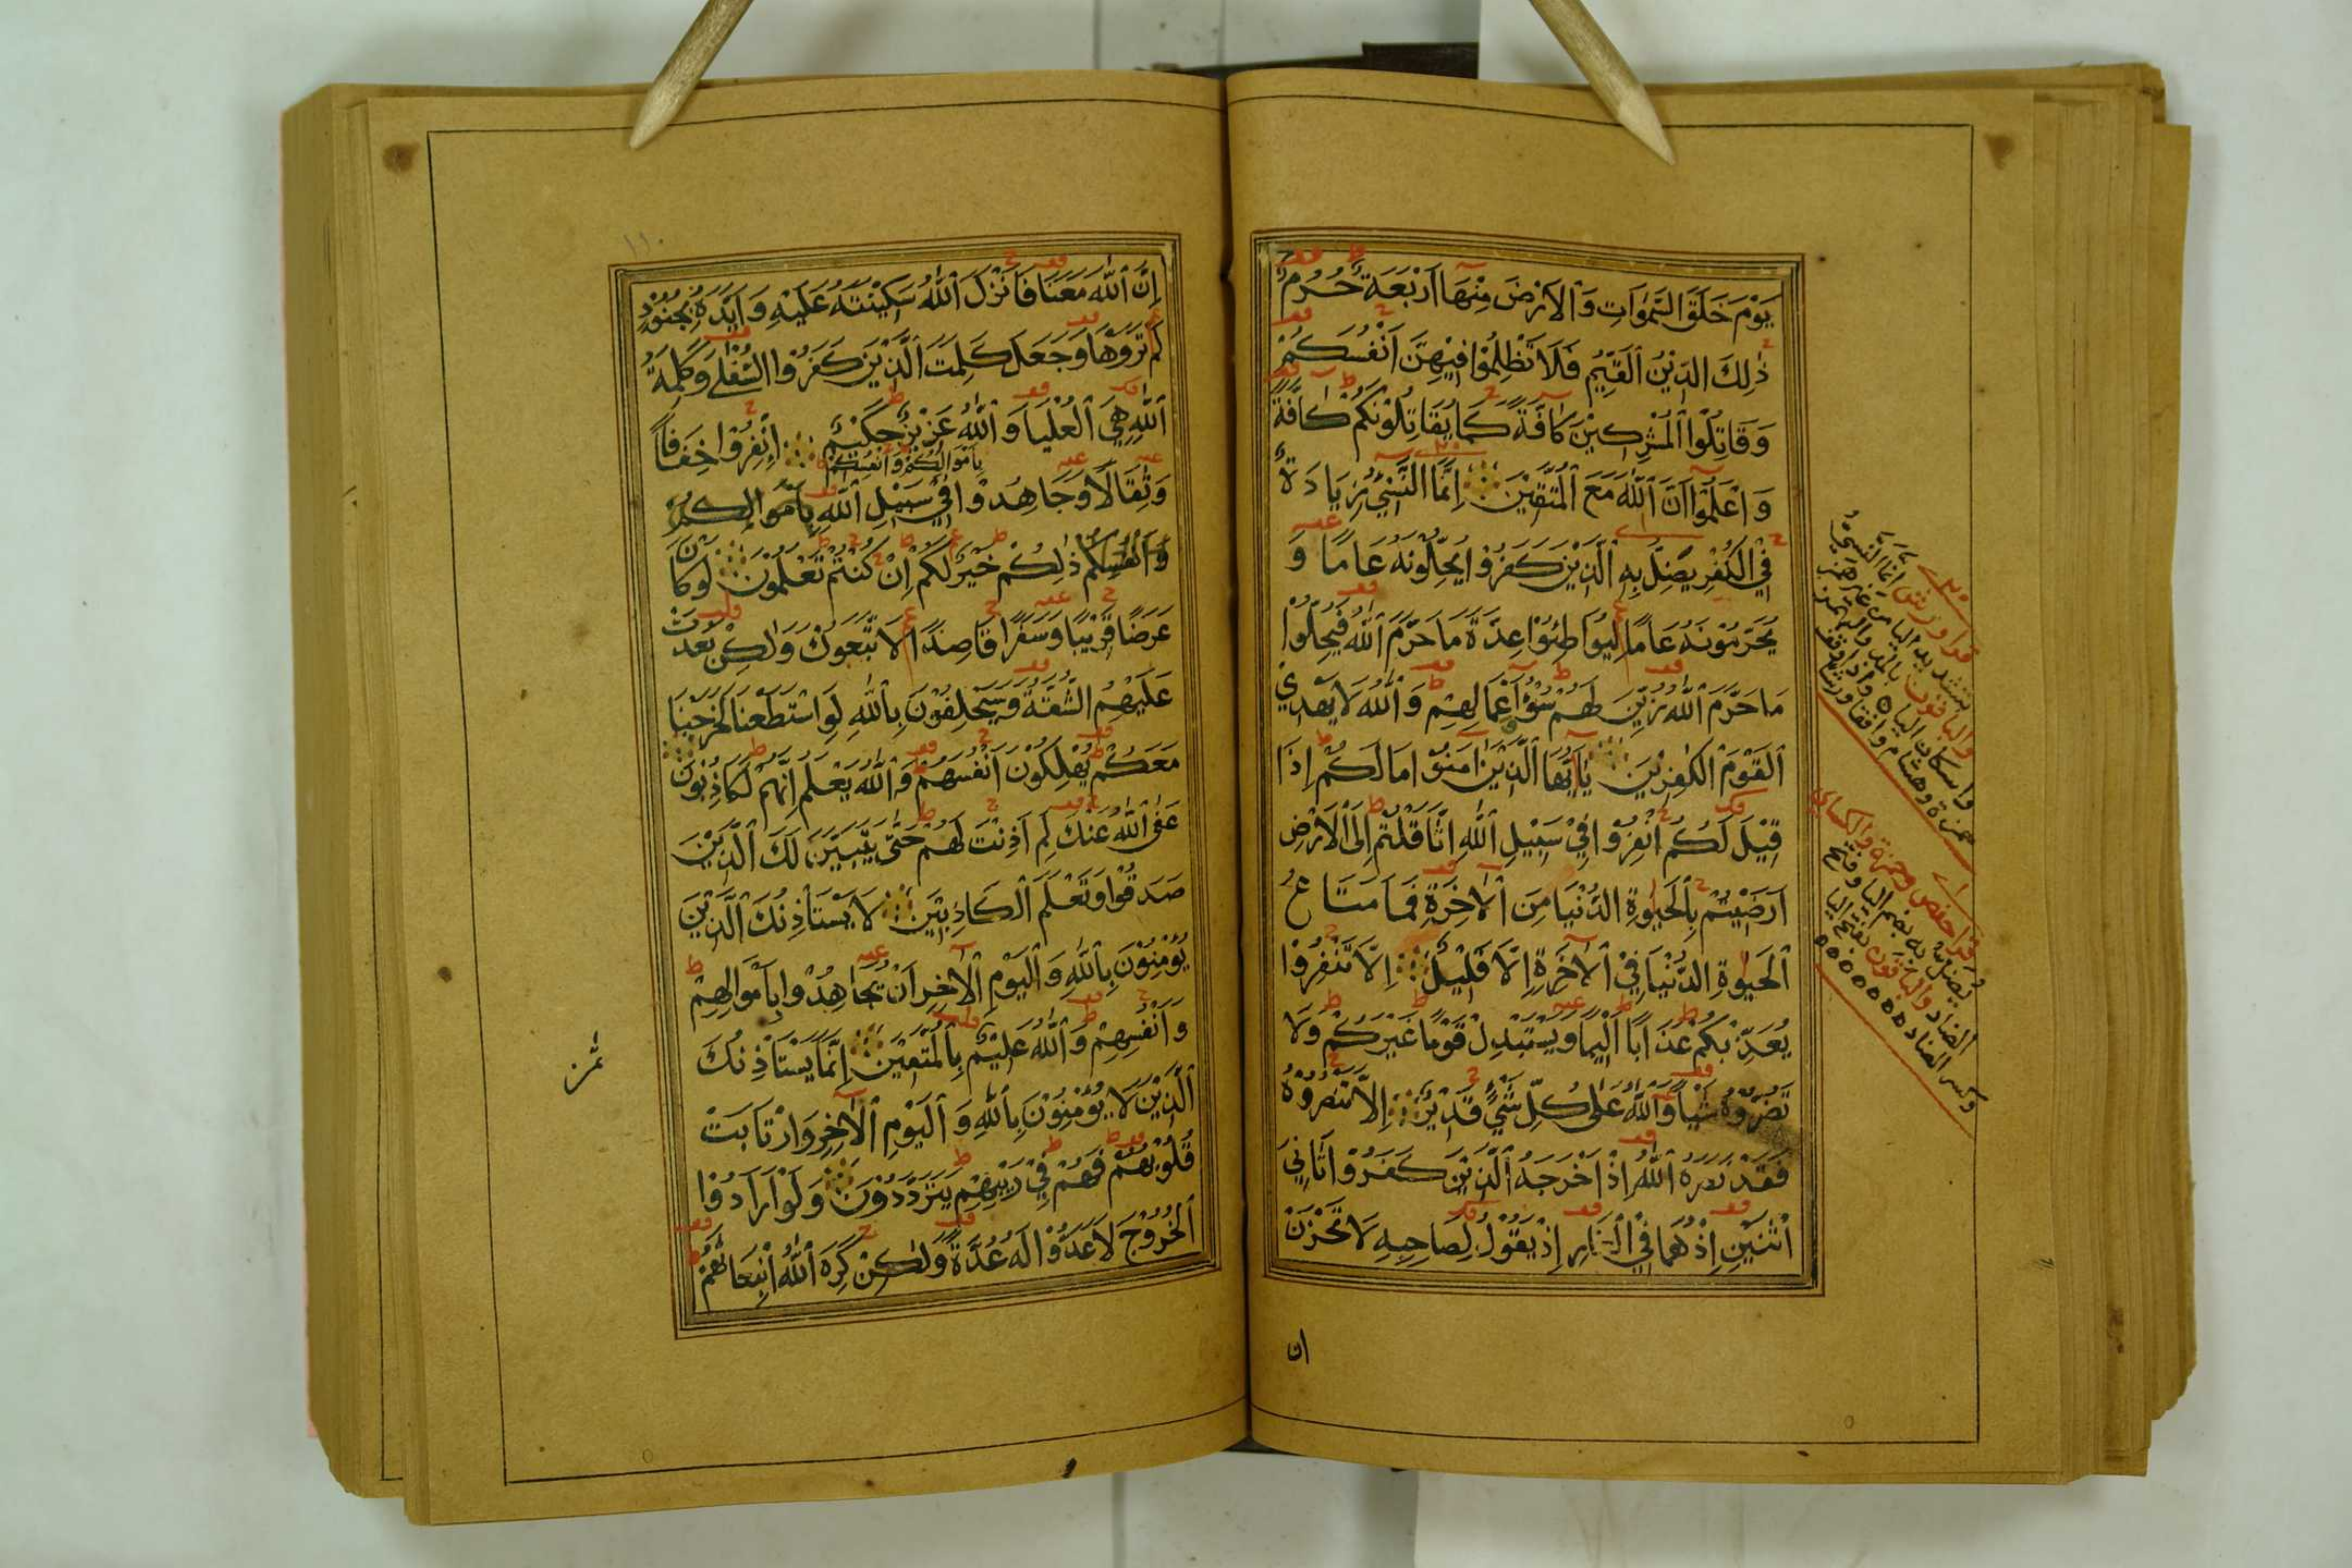 يَوْمَ خَلَقَ السَّمٰوَاتِ وَالْاَرْضَ مِنْهَا اَرْبَعَةٌ حُرُمٌ
ذٰلِكَ الدِّيْنُ الْقَيِّمُ فَلَا تَظْلِمُوْا فِيْهِنَّ اَنْفُسَكُمْ
وَقَاتِلُوا الْمُشْرِكِيْنَ كَافَّةً كَمَا يُقَاتِلُوْنَكُمْ كَافَّةً
وَاعْلَمُوْا اَنَّ اللّٰهَ مَعَ الْمُتَّقِيْنَ اِنَّمَا النَّسِيْٓءُ زِيَادَةٌ
فِي الْكُفْرِ يُضَلُّ بِهِ الَّذِيْنَ كَفَرُوْا يُحِلُّوْنَهُ عَامًا وَ
يُحَرِّمُوْنَهُ عَامًا لِيُوَاطِئُوْا عِدَّةَ مَا حَرَّمَ اللّٰهُ فَيُحِلُّوْا
مَا حَرَّمَ اللّٰهُ زُيِّنَ لَهُمْ سُوْٓءُ اَعْمَالِهِمْ وَاللّٰهُ لَا يَهْدِي
الْقَوْمَ الْكٰفِرِيْنَ يٰٓاَيُّهَا الَّذِيْنَ اٰمَنُوْا مَا لَكُمْ اِذَا
قِيْلَ لَكُمُ انْفِرُوْا فِيْ سَبِيْلِ اللّٰهِ اثَّاقَلْتُمْ اِلَى الْاَرْضِ
اَرَضِيْتُمْ بِالْحَيٰوةِ الدُّنْيَا مِنَ الْاٰخِرَةِ فَمَا مَتَاعُ
الْحَيٰوةِ الدُّنْيَا فِي الْاٰخِرَةِ اِلَّا قَلِيْلٌ اِلَّا تَنْفِرُوْا
يُعَذِّبْكُمْ عَذَابًا اَلِيْمًا وَيَسْتَبْدِلْ قَوْمًا غَيْرَكُمْ وَلَا
تَضُرُّوْهُ شَيْـًٔا وَاللّٰهُ عَلٰى كُلِّ شَيْءٍ قَدِيْرٌ اِلَّا تَنْصُرُوْهُ
فَقَدْ نَصَرَهُ اللّٰهُ اِذْ اَخْرَجَهُ الَّذِيْنَ كَفَرُوْا ثَانِيَ
اثْنَيْنِ اِذْ هُمَا فِي الْغَارِ اِذْ يَقُوْلُ لِصَاحِبِهِ لَا تَحْزَنْ
ان
قرا ورش انما النسي
بتشديد اليا من غير همز
والباقون بالمد والهمز
واسكان اليا واذا وقف
حمزة وهشام وافقا ورشا
قرا حفص وحمزة والكسائي
يضل به بضم اليا وفتح
الضاد والباقون بفتح اليا
وكسر الضاد
١١٠
اِنَّ اللّٰهَ مَعَنَا فَاَنْزَلَ اللّٰهُ سَكِيْنَتَهُ عَلَيْهِ وَاَيَّدَهُ بِجُنُوْدٍ
لَمْ تَرَوْهَا وَجَعَلَ كَلِمَتَ الَّذِيْنَ كَفَرُوا السُّفْلٰى وَكَلِمَةُ
اللّٰهِ هِيَ الْعُلْيَا وَاللّٰهُ عَزِيْزٌ حَكِيْمٌ اِنْفِرُوْا خِفَافًا
بِاَمْوَالِكُمْ وَاَنْفُسِكُمْ
وَثِقَالًا وَجَاهِدُوْا فِيْ سَبِيْلِ اللّٰهِ بِاَمْوَالِكُمْ
وَاَنْفُسِكُمْ ذٰلِكُمْ خَيْرٌ لَكُمْ اِنْ كُنْتُمْ تَعْلَمُوْنَ لَوْ كَانَ
عَرَضًا قَرِيْبًا وَسَفَرًا قَاصِدًا لَاتَّبَعُوْكَ وَلٰكِنْ بَعُدَتْ
عَلَيْهِمُ الشُّقَّةُ وَسَيَحْلِفُوْنَ بِاللّٰهِ لَوِ اسْتَطَعْنَا لَخَرَجْنَا
مَعَكُمْ يُهْلِكُوْنَ اَنْفُسَهُمْ وَاللّٰهُ يَعْلَمُ اِنَّهُمْ لَكَاذِبُوْنَ
عَفَى اللّٰهُ عَنْكَ لِمَ اَذِنْتَ لَهُمْ حَتّٰى يَتَبَيَّنَ لَكَ الَّذِيْنَ
صَدَقُوْا وَتَعْلَمَ الْكَاذِبِيْنَ لَا يَسْتَاْذِنُكَ الَّذِيْنَ
يُؤْمِنُوْنَ بِاللّٰهِ وَالْيَوْمِ الْاٰخِرِ اَنْ يُّجَاهِدُوْا بِاَمْوَالِهِمْ
وَاَنْفُسِهِمْ وَاللّٰهُ عَلِيْمٌ بِالْمُتَّقِيْنَ اِنَّمَا يَسْتَاْذِنُكَ
الَّذِيْنَ لَا يُؤْمِنُوْنَ بِاللّٰهِ وَالْيَوْمِ الْاٰخِرِ وَارْتَابَتْ
قُلُوْبُهُمْ فَهُمْ فِيْ رَيْبِهِمْ يَتَرَدَّدُوْنَ وَلَوْ اَرَادُوا
الْخُرُوْجَ لَاَعَدُّوْا لَهُ عُدَّةً وَلٰكِنْ كَرِهَ اللّٰهُ انْبِعَاثَهُمْ